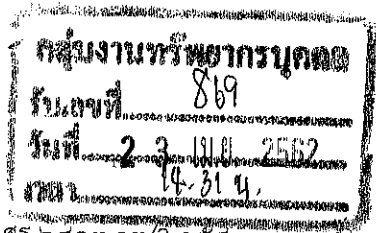 กลุ่มงานทรัพยากรบุคคล
รับเลขที่ 869
วันที่ 2 3 เม.ย. 2562
เวลา 14.31 น.